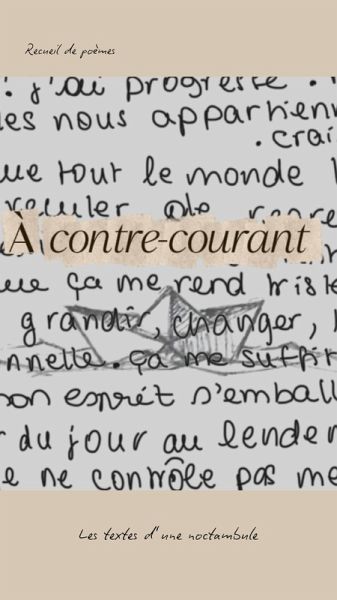 Recueil de poèmes
! j'ai progressé.
les nous appartienn
. crai
ue tout le monde
reculer de
À contre-courant
ue ça me rend triste
grandir, changer,
nnelle. ça me suffir
on esprit s'emball
du jour au lende
e ne contrôle pas me
Les textes d'une noctambule